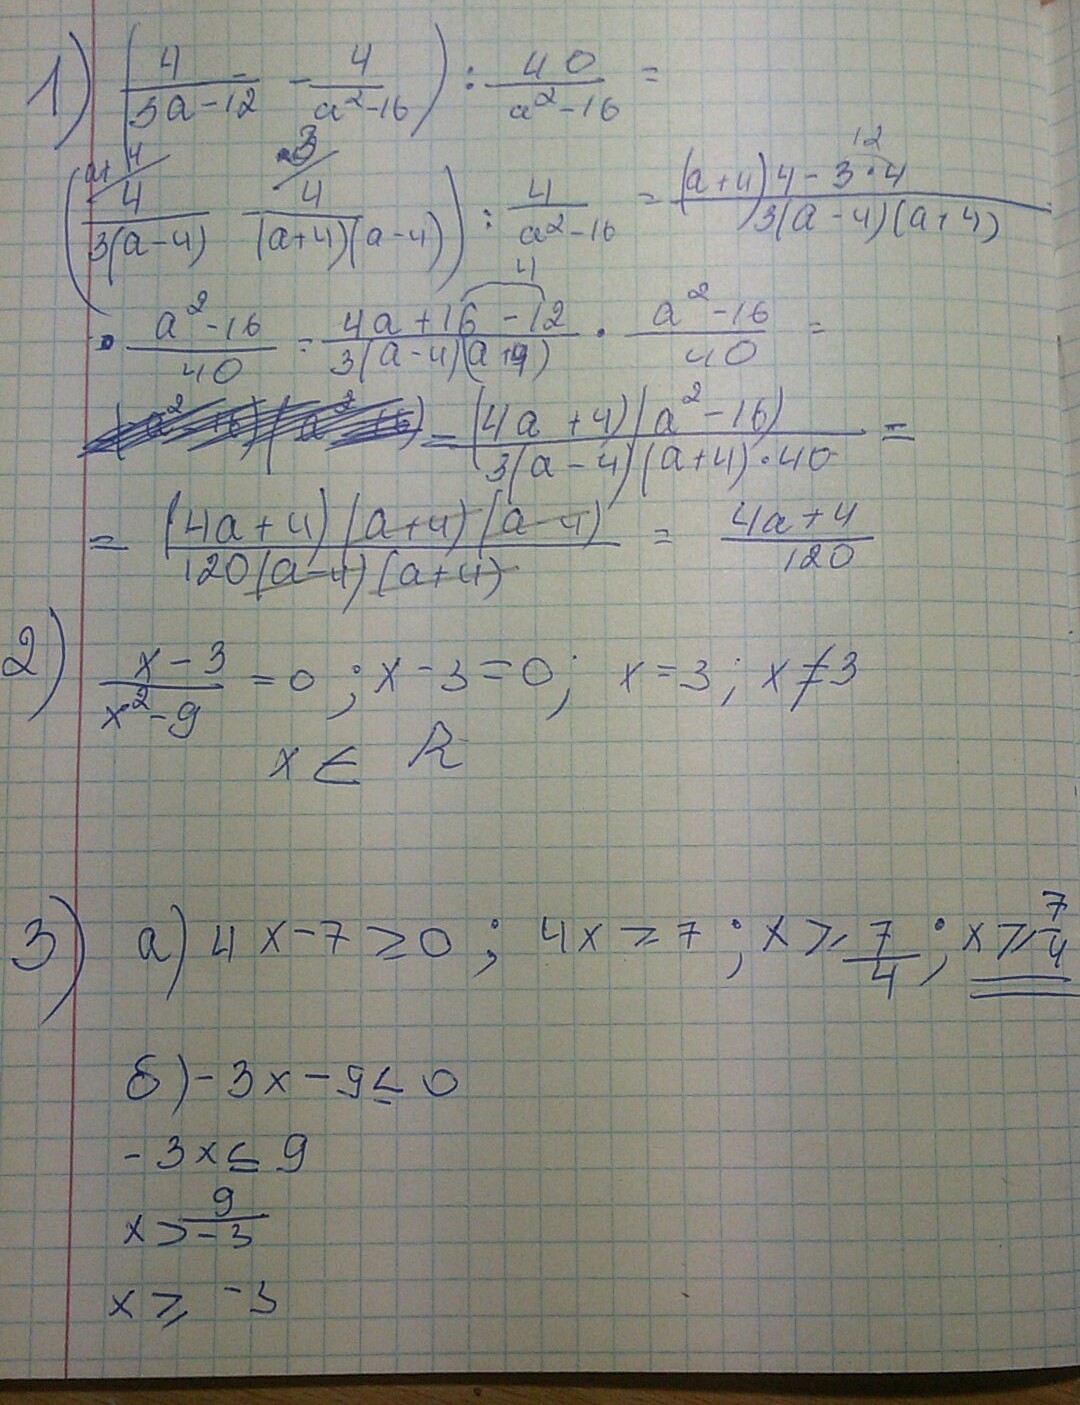 1) (4/(3a-12) - 4/(a²-16)) : 40/(a²-16) =
(a+4 4/(3(a-4)) 3 4/((a+4)(a-4))) : 4/(a²-16) = ((a+4)4 - 3·4)/(3(a-4)(a+4)) 12
· (a²-16)/40 = (4a+16-12)/(3(a-4)(a+4)) · (a²-16)/40 = 4
= ((4a+4)(a²-16))/(3(a-4)(a+4)·40) =
= ((4a+4)(a+4)(a-4))/(120(a-4)(a+4)) = (4a+4)/120
2) (x-3)/(x²-9) = 0 ; x-3=0; x=3; x≠3
x ∈ R
3) а) 4x-7≥0; 4x≥7; x≥7/4; x≥7/4
б) -3x-9≤0
-3x≤9
x>9/-3
x≥ -3